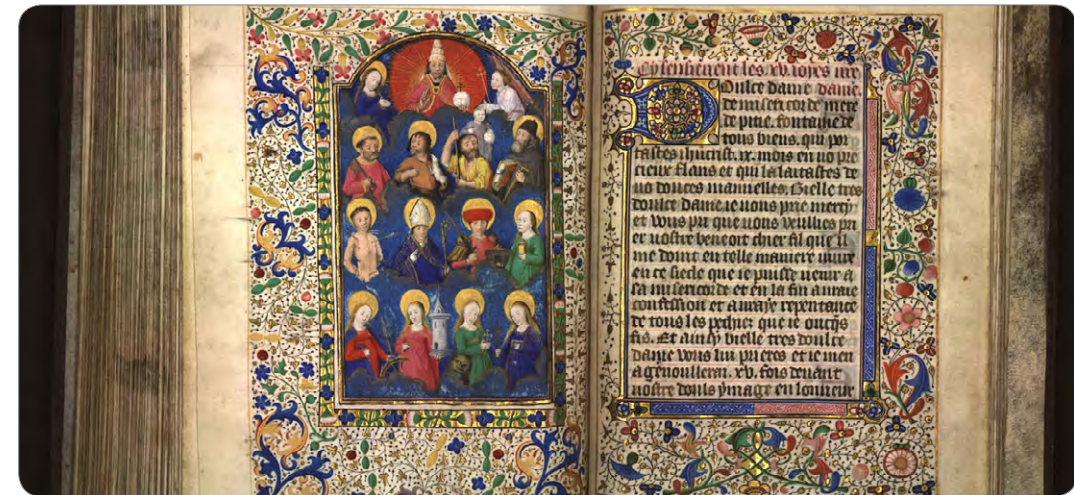 Cy ensuivent les .xv. ioyes nre
Dulce dame dame
de misericorde mere
de pitie. fontaine de
tous biens. qui por
tastes ihucrist. ix. mois en uo pre
cieux flans et qui lalaitastes de
uo doulces mamelles. Bielle tres
doulce dame ie uous prie mercy
et vous pri que uous veullies pri
er uostre benoit chier fil que il
me doint en telle maniere uiure
en ce siecle que ie puisse uenir a
sa misericorde et en la fin auraie
confession et auraye repentance
de tous les pechiez que ie oncqs
fis. Et ainsy bielle tres doulce
dame vous lui prieres et ie men
agenoullerai. xv. fois deuant
uostre douls ymage en lonneur